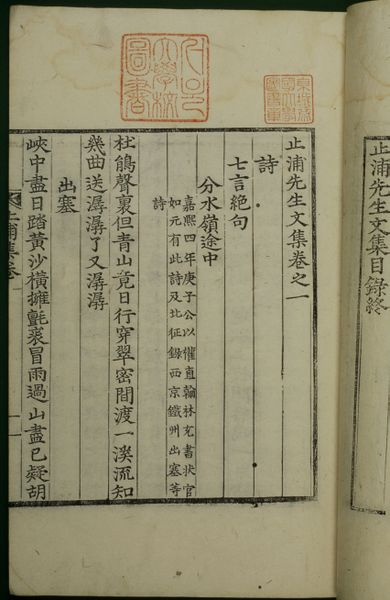 止浦先生文集目錄終
京城帝國大學圖書章
서울大學校圖書
止浦先生文集卷之一
詩
七言絶句
分水嶺途中
嘉熙四年庚子公以權直翰林充書狀官
如元有此詩及北征錄西京鐵州出塞等
詩
杜鵑聲裏但青山竟日行穿翠密間渡一溪流知
幾曲送潺潺了又潺潺
出塞
峽中盡日踏黃沙橫擁氈裘冒雨過山盡已疑胡
止浦集卷